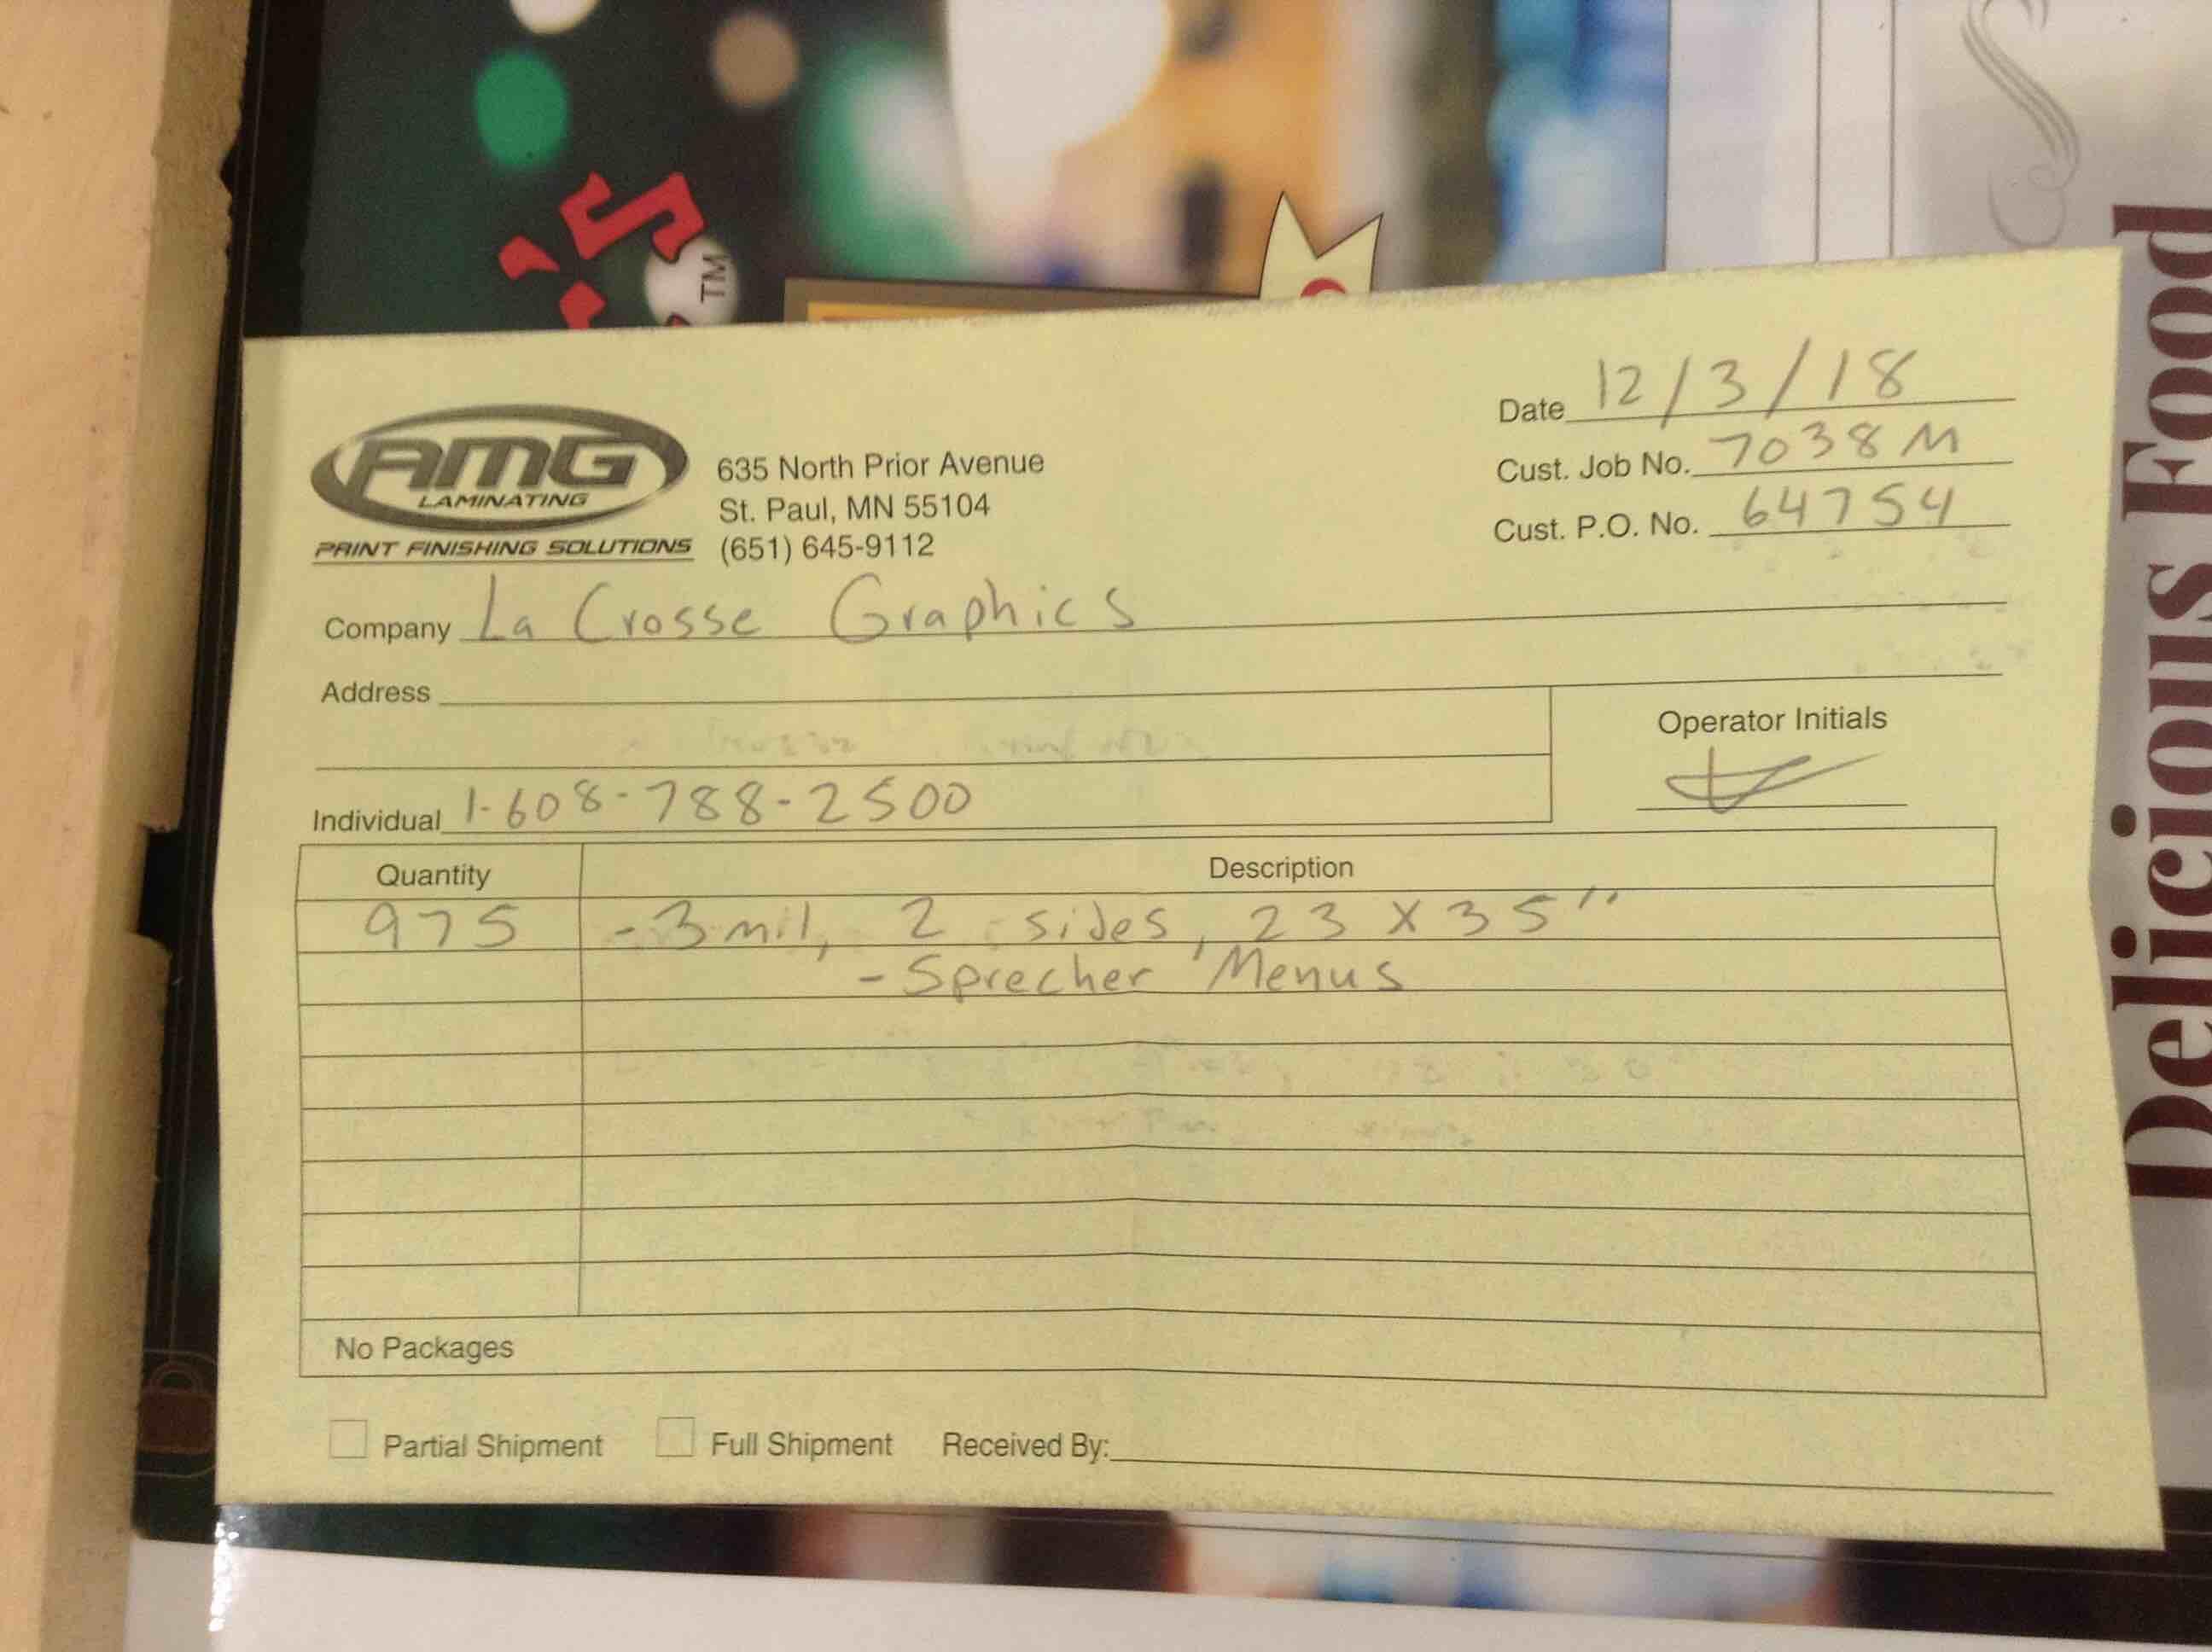 's
TM
Delicious Food
AMG
LAMINATING
PRINT FINISHING SOLUTIONS
635 North Prior Avenue
St. Paul, MN 55104
(651) 645-9112
Date 12/3/18
Cust. Job No. 7038M
Cust. P.O. No. 64754
Company La Crosse Graphics
Address
Operator Initials
Individual 1-608-788-2500
Quantity Description
975 - 3 mil, 2 sides, 23 X 35"
- Sprecher Menus
No Packages
Partial Shipment Full Shipment Received By: